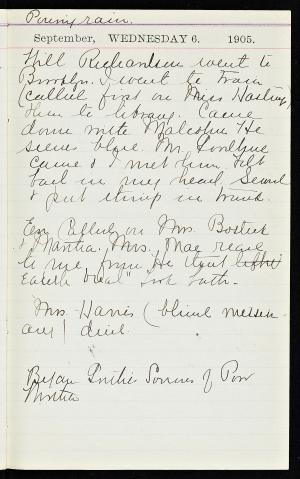 Pouring rain.
September, WEDNESDAY 6. 1905.
Will Richardson went to
Brooklyn. I went to train
(called first on Miss Hastings)
then to library. Came
down with Malcolm. He
seems blue. Mr.
came & I met him. Felt
bad in my head. Sewed
& put things in trunk.
Eve. Called on Mrs. Bostick
& Martha. Mrs. Mae read
to me from "He that
Eateth Bread" Took bath.
Mrs. Harris (blind
) died.
Began Sorrows of
Martha